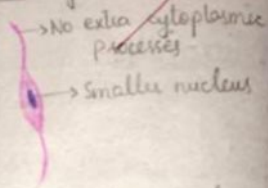 No extra cytoplasmic
processes
Smaller nucleus